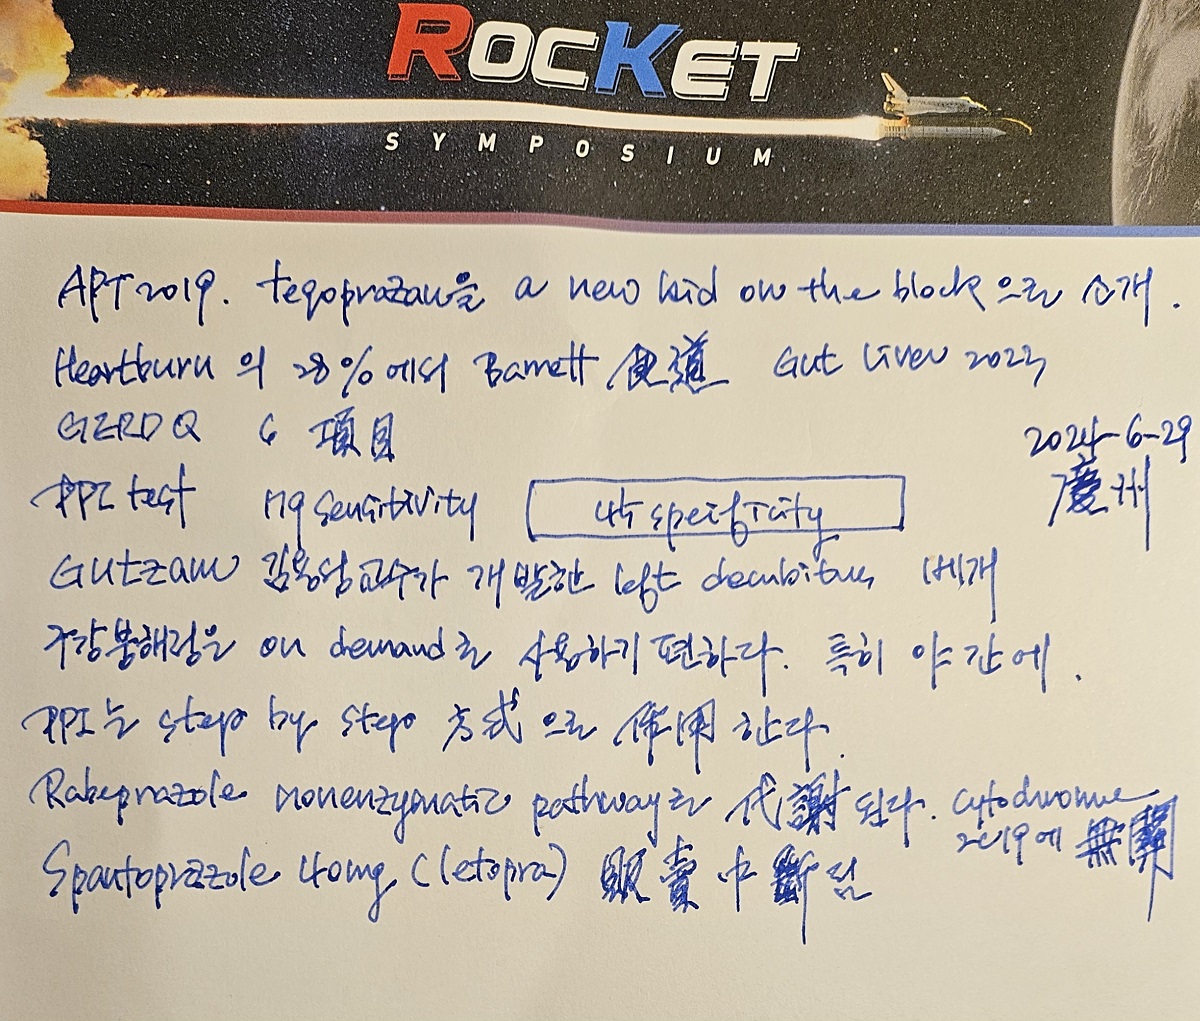 ROCKET
SYMPOSIUM
APT 2019. tegoprazan을 a new kid on the block으로 소개.
Heartburn의 28%에서 Barrett 食道 Gut Liver 2023
GERDQ 6 項目
2024-6-29
慶州
PPI test 79 sensitivity 45 specificity
Gutzam 김용성교수가 개발한 left decubitus 베개
구강붕해정은 on demand로 사용하기 편하다. 특히 야간에.
PPI는 step by step 方式으로 作用한다.
Rabeprazole nonenzymatic pathway로 代謝된다. cytochrome
2C19에 無關
Spantoprazole 40mg (letopra) 販賣中斷됨